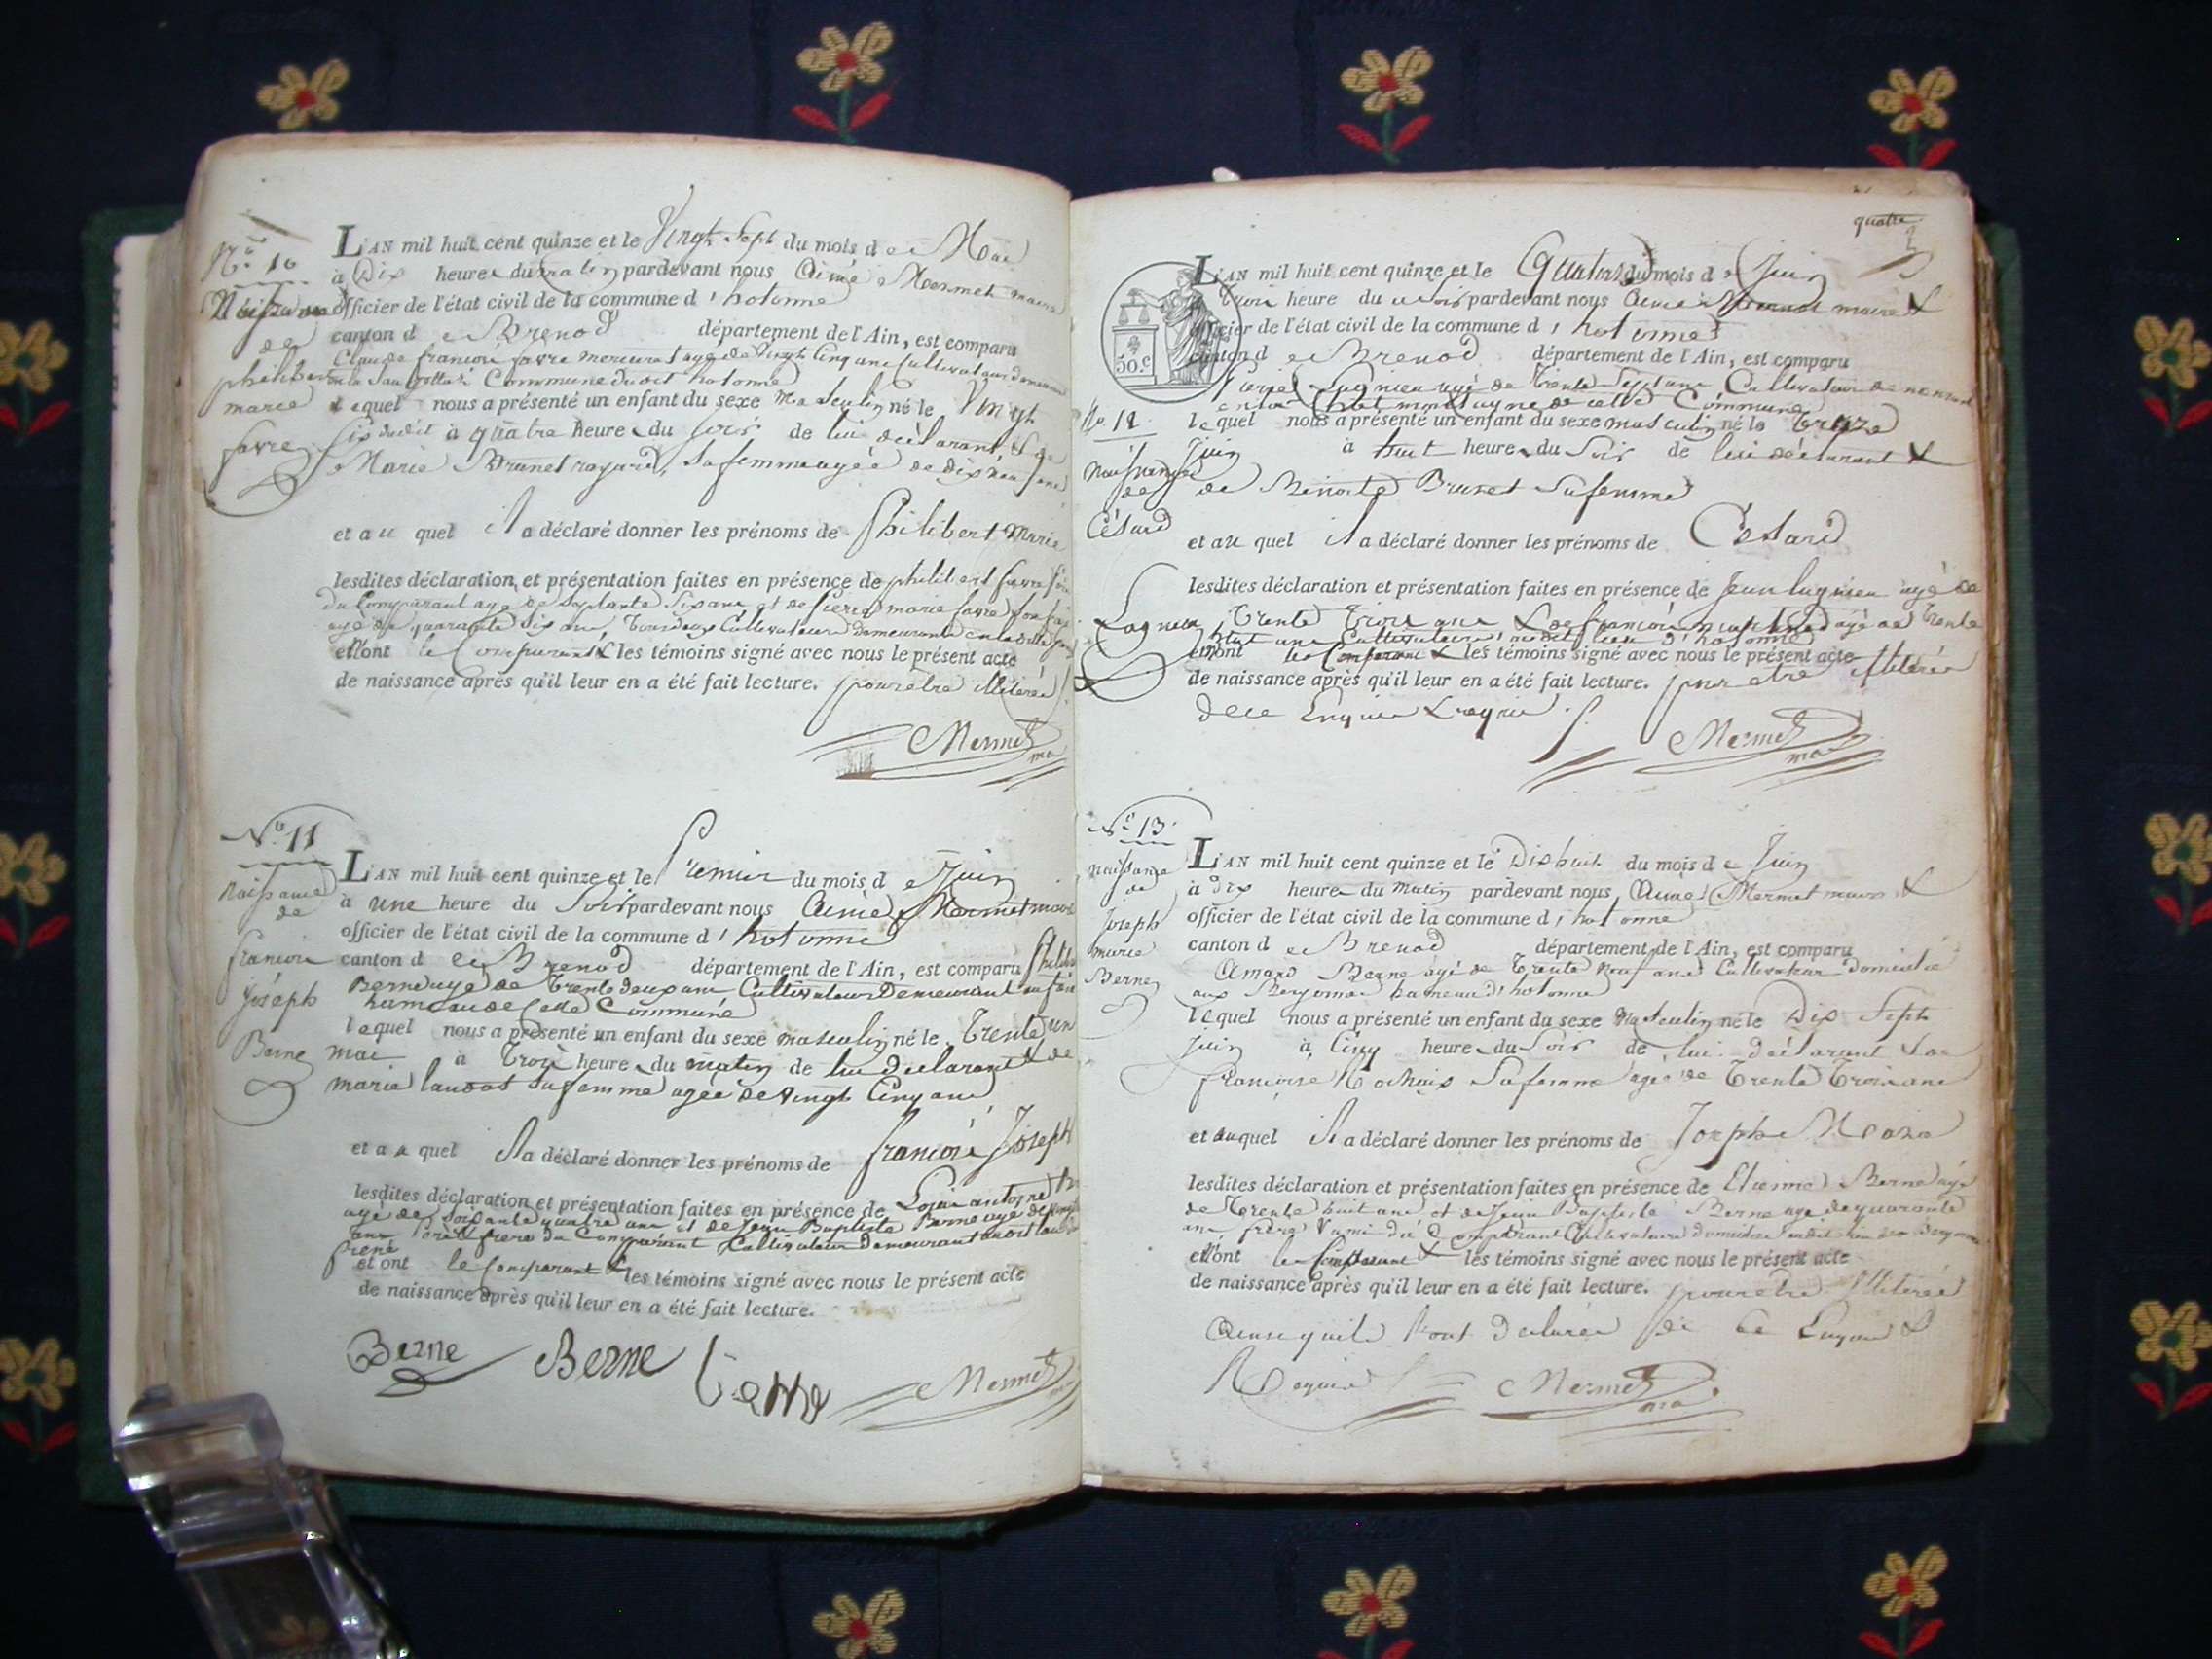 No. 10
Naissance
de
philibert
marie
favre
L'AN mil huit cent quinze et le Vingt Sept du mois de Mai
à Dix heures du matin pardevant nous Aimé Mermet maire
officier de l'état civil de la commune d'hotonne
canton de Brenod département de l'Ain, est comparu
Claude françois favre agé de Vingt Cinq ans Cultivateur
Commune dudit hotonne
lequel nous a présenté un enfant du sexe masculin né le Vingt
Six dudit à quatre heure du soir de lui déclarant & de
Marie Brunet sa femme agée de dix neuf ans
et au quel il a déclaré donner les prénoms de Philibert Marie
lesdites déclaration et présentation faites en présence de philibert favre
du Comparant agé de Septante Six ans et de pierre marie favre
agé de quarante Six ans Tous deux Cultivateurs demeurants
et n'ont le Comparant & les témoins signé avec nous le présent acte
de naissance après qu'il leur en a été fait lecture. pour etre illiterés
Mermet
No. 11
Naissance
de
francois
joséph
Berne
L'AN mil huit cent quinze et le Premier du mois de Juin
à une heure du Soir pardevant nous Aimé Mermet maire
officier de l'état civil de la commune d'hotonne
canton de Brenod département de l'Ain, est comparu
Berne agé de Trente deux ans Cultivateur Demeurant
hameau de Cette Commune
lequel nous a présenté un enfant du sexe masculin né le Trente un
mai à Trois heure du matin de lui déclarant & de
marie sa femme agée de vingt Cinq ans
et au quel il a déclaré donner les prénoms de francois Joseph
lesdites déclaration et présentation faites en présence de Louis antoine
agé de soixante quatre ans et de Jean Baptiste Berne agé de
ans père & frere du Comparant Cultivateurs demeurant
et ont le Comparant & les témoins signé avec nous le présent acte
de naissance après qu'il leur en a été fait lecture.
Berne Berne Berne Mermet
quatre
50.C
No. 12
Naissance
de
Césard
Lagnieu
L'AN mil huit cent quinze et le Quatorze du mois de Juin
à Trois heure du Soir pardevant nous Aimé Mermet maire &
officier de l'état civil de la commune d'hotonne
canton de Brenod département de l'Ain, est comparu
Lagnieu agé de Trente Sept ans Cultivateur demeurant
de cette Commune
lequel nous a présenté un enfant du sexe masculin né le treize
Juin à huit heure du Soir de lui déclarant &
de Brunet sa femme
et au quel il a déclaré donner les prénoms de Césard
lesdites déclaration et présentation faites en présence de Jean lagnieu agé de
Trente Trois ans & de francois agé de Trente
huit ans Cultivateurs d'hotonne
et n'ont le Comparant & les témoins signé avec nous le présent acte
de naissance après qu'il leur en a été fait lecture. pour etre illiterés
de ce Enquis & requis
Mermet
No. 13
naissance
de
Joseph
marie
Berne
L'AN mil huit cent quinze et le Dix huit du mois de Juin
à dix heure du matin pardevant nous Aimé Mermet maire &
officier de l'état civil de la commune d'hotonne
canton de Brenod département de l'Ain, est comparu
Amard Berne agé de Trente Neuf ans Cultivateur domicilié
aux Bergonnes hameau d'hotonne
lequel nous a présenté un enfant du sexe masculin né le Dix Sept
Juin à Cinq heure du Soir de lui déclarant & de
francoise sa femme agée de Trente Trois ans
et auquel il a déclaré donner les prénoms de Joseph Marie
lesdites déclaration et présentation faites en présence de Etienne Berne agé
de Trente huit ans et de Jean Baptiste Berne agé de quarante
ans frère & ami du Comparant Cultivateurs
et n'ont le Comparant & les témoins signé avec nous le présent acte
de naissance après qu'il leur en a été fait lecture. pour etre illiterés
Ainsi qu'ils l'ont déclaré de ce Enquis &
Requis Mermet